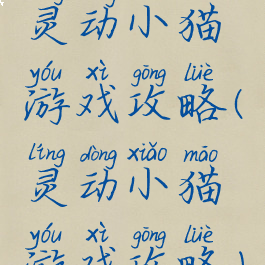 灵动小猫
yóu xì gōng lüè
游戏攻略(
líng dòng xiǎo māo
灵动小猫
yóu xì gōng lüè
游戏攻略)